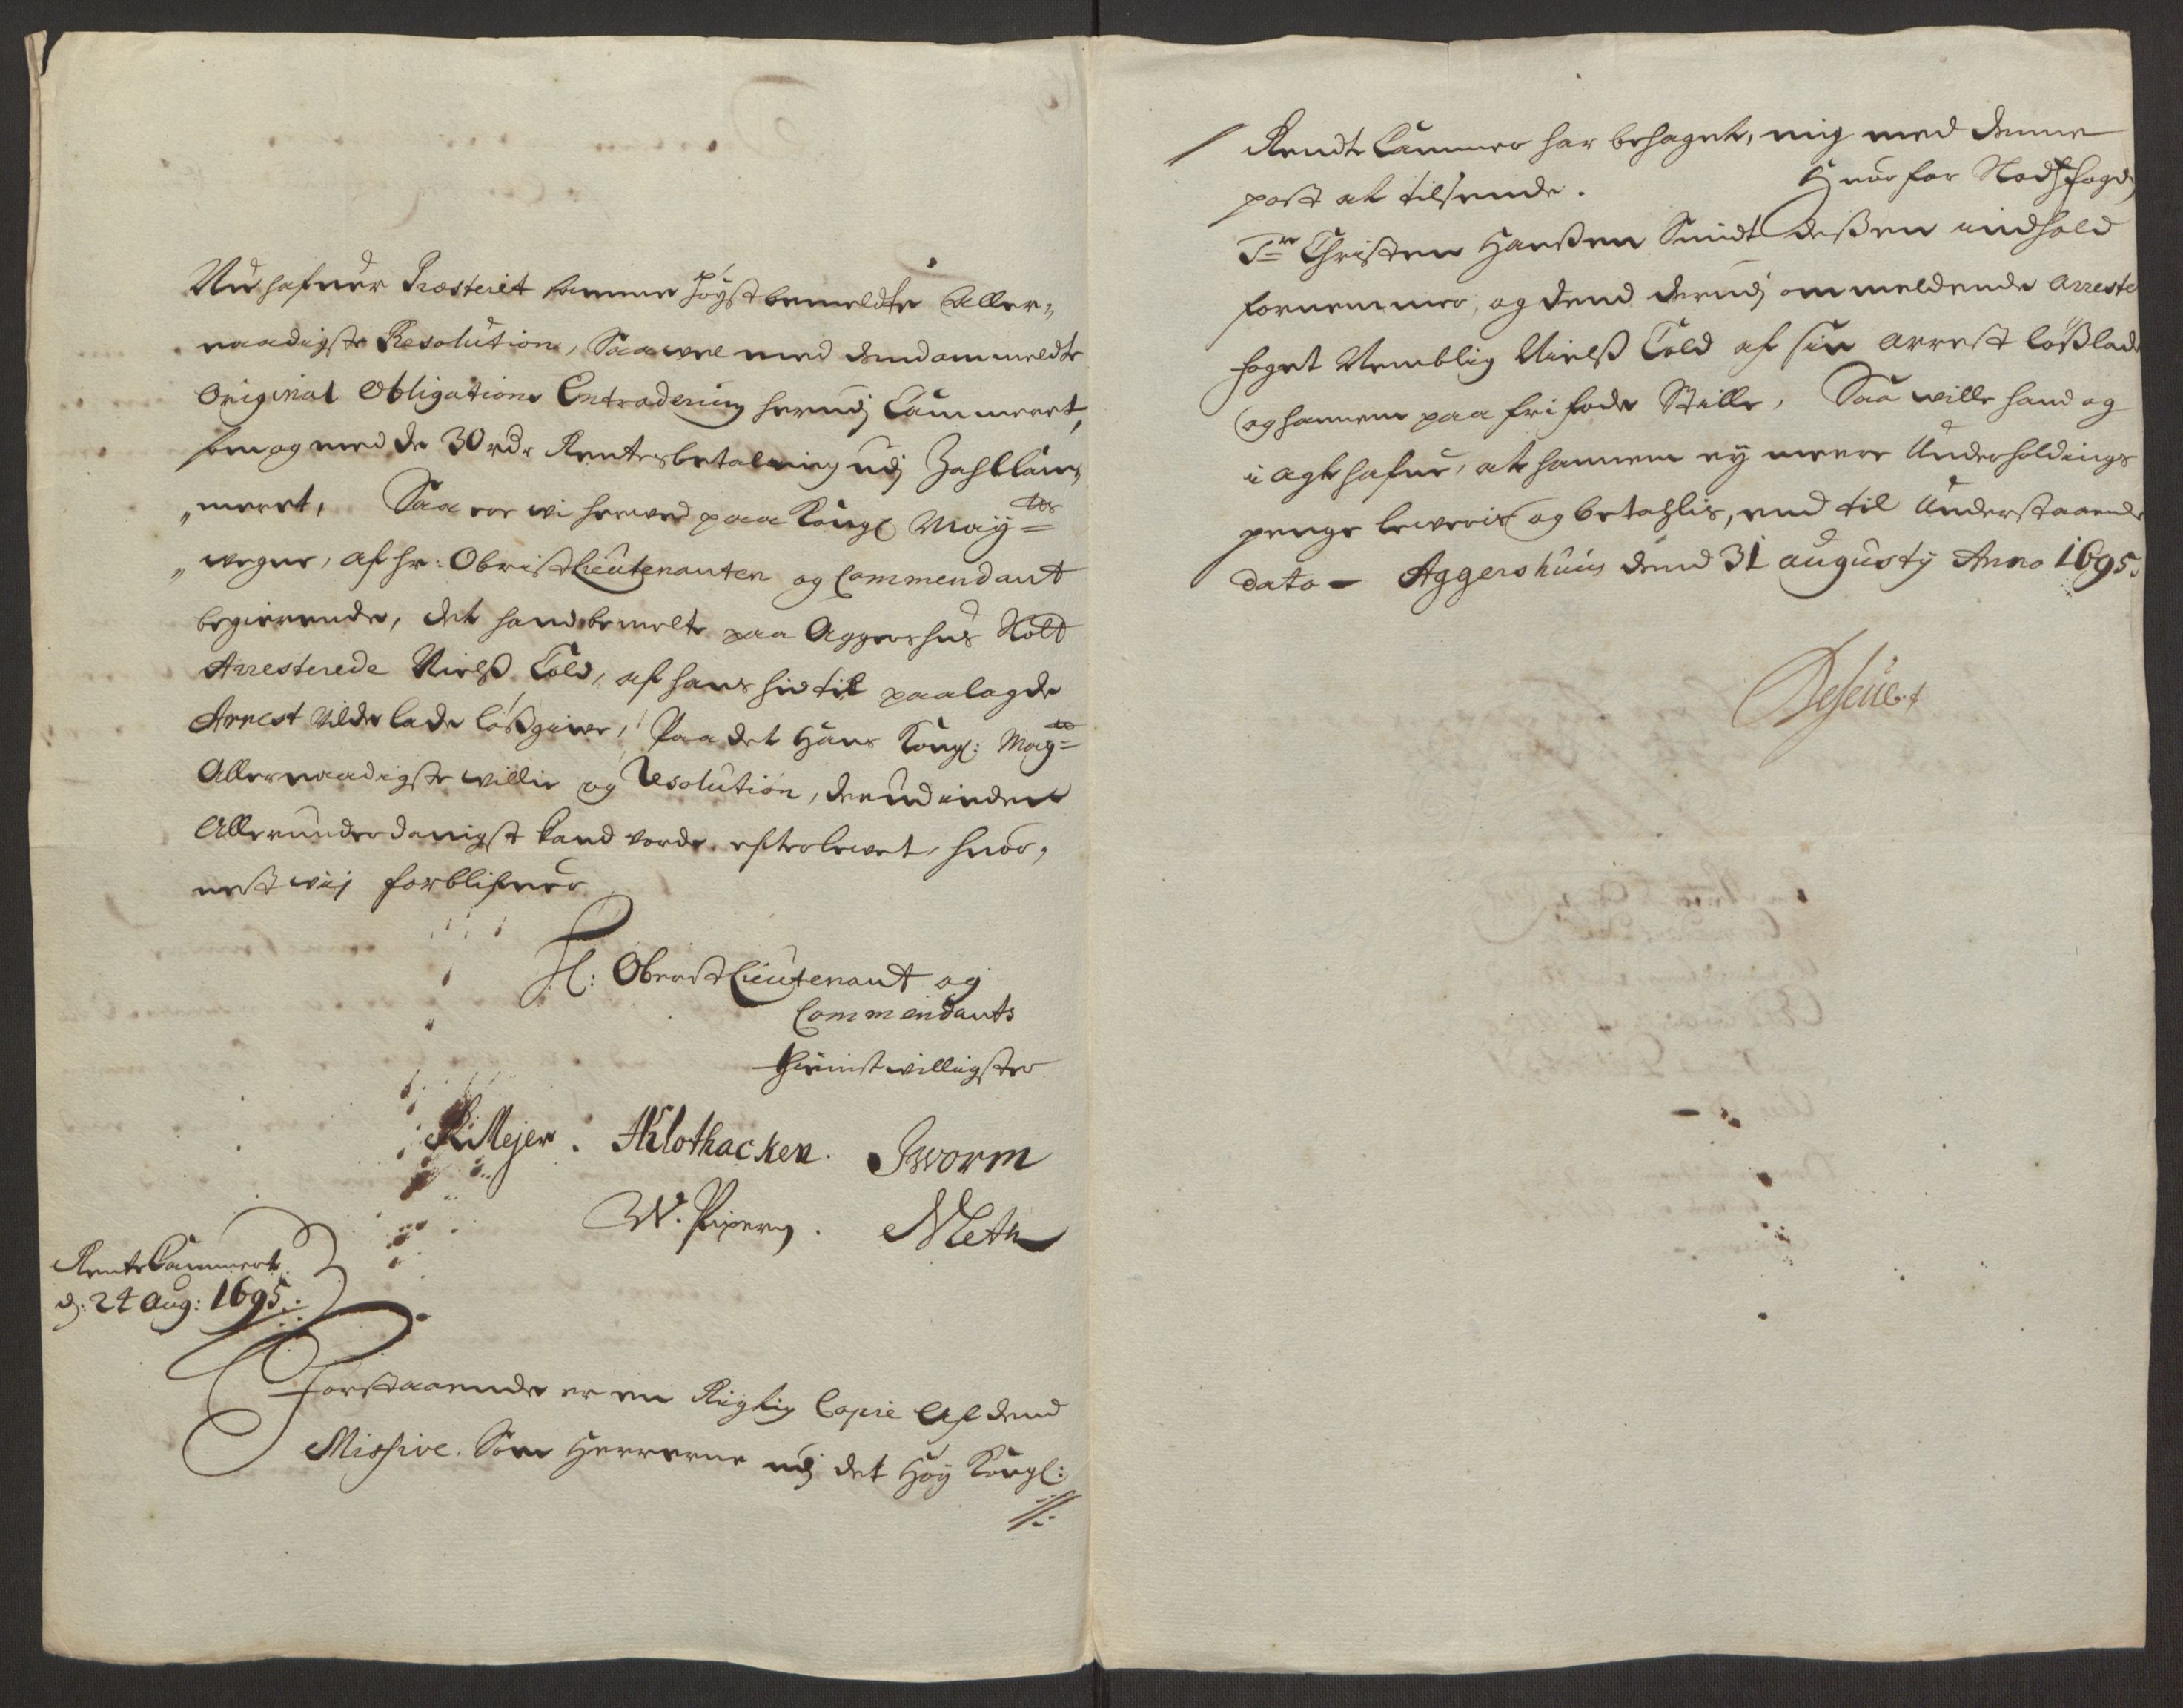 Nu hafuer Præsterit samme höystbemeldte Aller„
naadigste Resolution, Saavel med dend ommeldte
Original Obligations Extradering herudj Cammeret,
som og med de 30 rdr Rentesbetalning udj Zahlkam„
„meret, Saa er wi herved paa Kongl May.ts
„wegne, af Hr: ObristLieutenanten og Commendant
begierende, det hand bemelte paa Aggershus Slott
Arresterede Nielß Told, af hans hid til paalagde
Arrest vilde lade lößgive, Paa det Hans Kongl: May.ts
Allernaadigste villie og Resolution, derudinden
Allerunderdanigst kand vorde efterlevet, huor„
nest wij forblifuer
H: OberstLieutenant og
Commendants
Thienistvilligster
P Mejer. H Klothacken. J Worm
W. Pipery. N Meth
RenteCammeret
d: 24 Aug: 1695.
Forstaaende er en Rigtig Copie Af dend
Missive. Som Herrerne udj det Höy Kongl:
//:
/ RendteCammer har behaget, mig med denne
post at tilsende. Huorfor Slodtzfogd
Sr Christen Hanßen Smidt deßen indhold
fornemmer, og dend derudj ommeldende Arreste
foget Nemblig Nielß Told af sin arrest lößlade
og hannem paa fri fode Stille, Saa wille hand og
i agt hafue, at hannem ey meere Underholdings
penge leweris og betahlis, end til Understaaende
dato - Aggershuus dend 31 augustij Anno 1695.